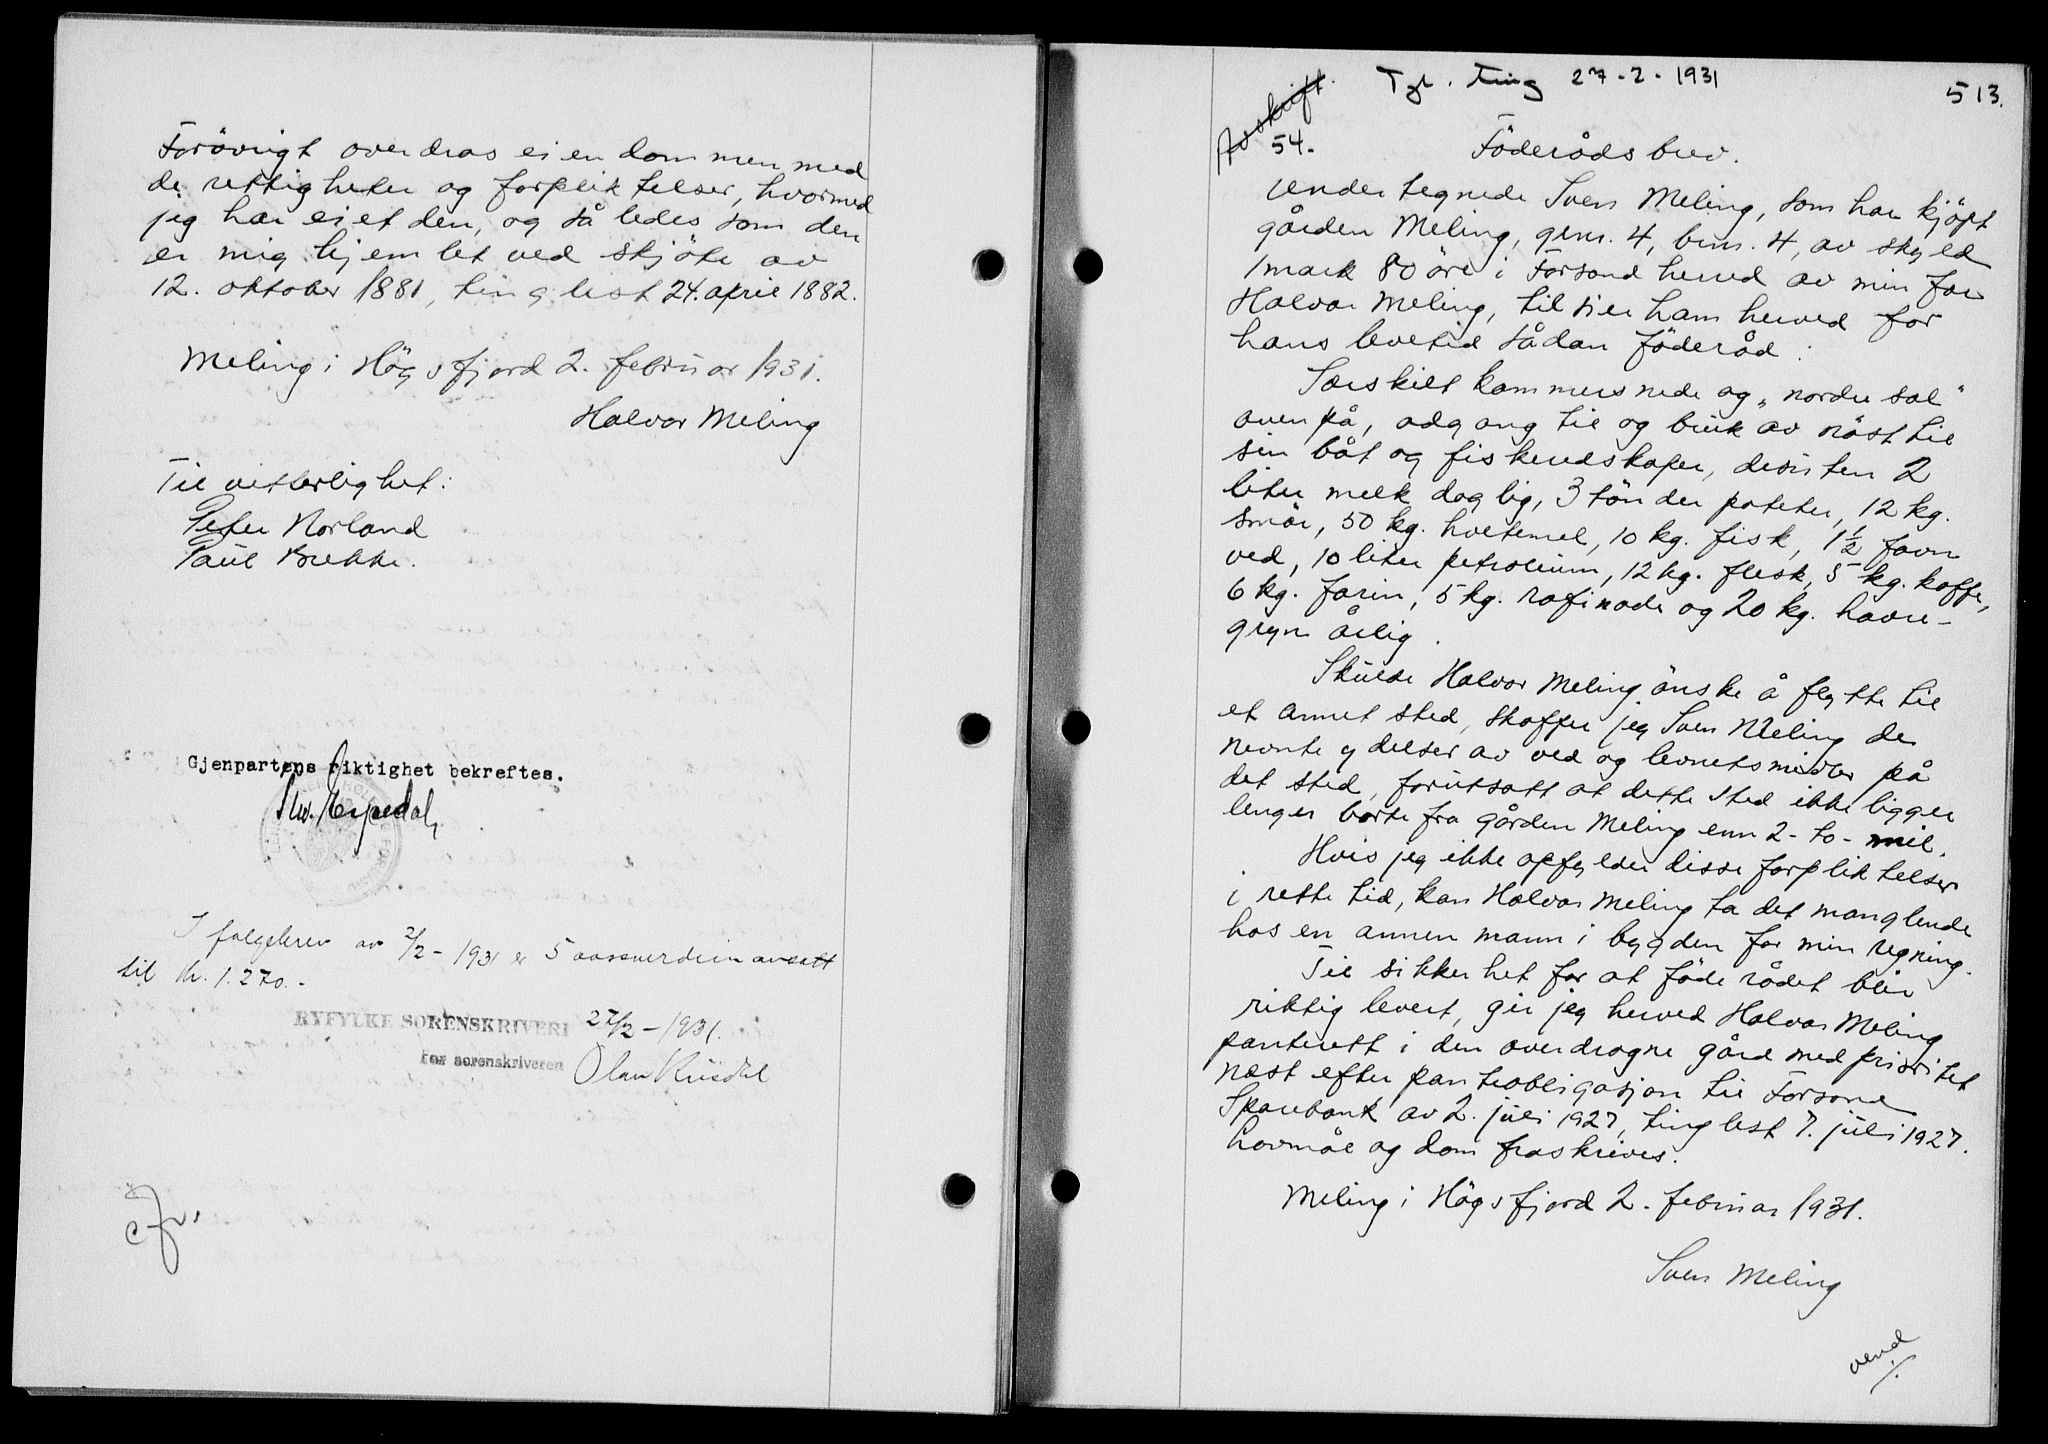 Forøvrigt overdras eiendommen med
de rettigheter og forpliktelser, hvormed
jeg har eiet den, og således som den
er mig hjemlet ved skjøte av
12. oktober 1881, tinglest 24. april 1882.
Meling i Högsfjord 2. februar 1931.
Halvor Meling
Til vitterlighet:
Peter Norland
Paul Brekke.
Gjenpartens riktighet bekreftes.
I følgebrev av 2/2-1931 er 5 aarsverdien ansatt
til kr. 1.270.-
RYFYLKE SORENSKRIVERI 27/2-1931.
For sorenskriveren
Avskrift.
Tgl. ting 27-2-1931
513.
54.
Föderådsbrev.
Undertegnede Sven Meling, som har kjöpt
gården Meling, gnr. 4, bnr. 4, av skyld
1 mark 80 öre i Forsand herred av min far
Halvor Meling, tilsier ham herved for
hans levetid sådan föderåd:
Særskilt kammers nede og „nordre sal"
ovenpå, adgang til og bruk av nöst til
sin båt og fiskeredskaper, desuten 2
liter melk daglig, 3 tönder poteter, 12 kg.
smör, 50 kg. hvetemel, 10 kg. fisk, 1½ favn
ved, 10 liter petroleum, 12 kg. flesk, 5 kg. kaffe,
6 kg. farin, 5 kg. rafinade og 20 kg. havre-
gryn årlig.
Skulde Halvor Meling önske å flytte til
et annet sted, skaffer jeg Sven Meling de
nevnte ydelser av ved og levnetsmidler på
det sted, forutsatt at dette sted ikke ligger
lenger borte fra gården Meling enn 2- to- mil.
Hvis jeg ikke opfylder disse forpliktelser
i rette tid, kan Halvor Meling ta det manglende
hos en annen mann i bygden for min regning.
Til sikkerhet for at föderådet blir
riktig levert, gir jeg herved Halvor Meling
panterett i den overdragne gård med prioritet
næst efter panteobligasjon til Forsand
Sparebank av 2. juli 1927, tinglest 7. juli 1927.
Lovmål og dom fraskrives.
Meling i Högsfjord 2. februar 1931.
Sven Meling
vend